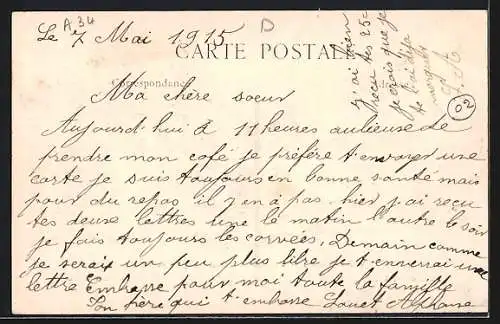 A 34
Le 7 Mai 1915
D
CARTE POSTALE
Correspondance
j'ai bien
recu tes 25c
je crois que je
te l'ai déja
marqué
L A
02
Ma chère soeur
Aujourd'hui à 11 heures aulieu de
prendre mon café je préfère t'envoyer une
carte je suis toujours en bonne santé mais
pour du repos il y en a pas. hier j'ai recu
tes deuse lettres une le matin l'autre le soir
je fais toujours les corvées. Demain comme
je serai un peu plus libre je t'enverrai une
lettre Embrasse pour moi toute la famille
Ton frère qui t'embrasse Louet Alphonse